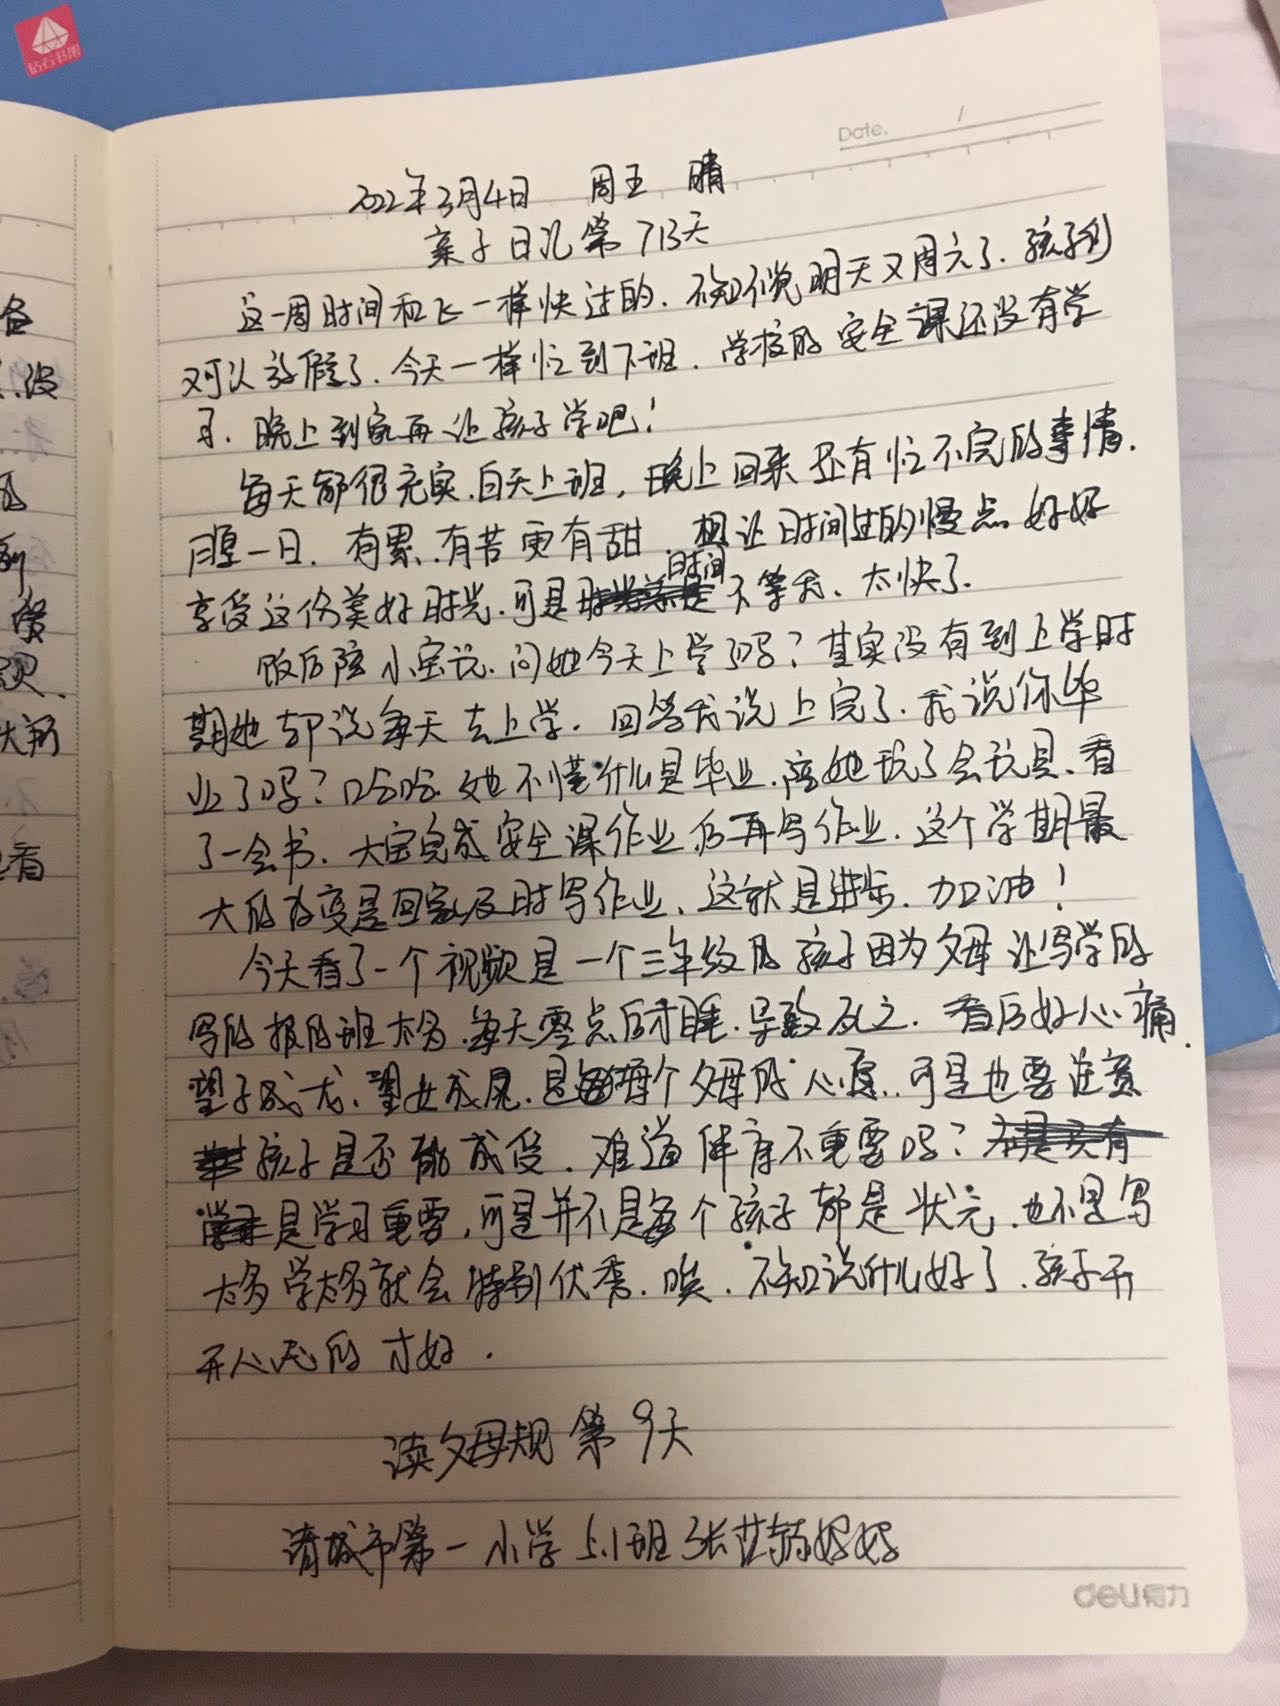 钻石书架
Date. /
2022年3月4日 周五 晴
亲子日记第713天
这一周时间和飞一样快过的.不知不觉明天又周六了.孩子们
又可以放假了.今天一样忙到下班.学校的安全课还没有学
了.晚上到家再让孩子学吧!
每天都很充实.白天上班,晚上回来还有忙不完的事情.
周复一日.有累.有苦更有甜.想让时间过的慢点.好好
享受这份美好时光.可是时间不等我、太快了.
饭后陪小宝说.问她今天上学了吗?其实没有到上学时
期她却说每天去上学.回答我说上完了.我说你毕
业了吗?哈哈 她不懂什么是毕业.陪她玩了会玩具、看
了一会书.大宝完成安全课作业后再写作业.这个学期最
大的改变是回家及时写作业、这就是进步.加油!
今天看了一个视频是一个三年级的孩子因为父母让写学的
写的报的班太多.每天零点后才睡.导致 .看后好心痛.
望子成龙、望女成凤.是每个父母的心愿.可是也要注意
孩子是否能成受.难道体育不重要吗?
是学习重要,可是并不是每个孩子都是状元.也不是写
太多学太多就会特别优秀.唉.不知说什么好了.孩子开
开心心的才好.
读父母规第9天
市第一小学5.1班张 妈妈
deli得力
各
没
看